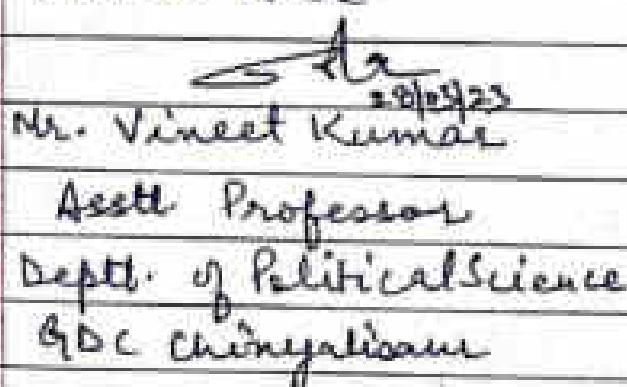 28/03/23
Mr. Vineet Kumar
Asstt Professor
Deptt. of Political Science
GDC Chinyalisaur